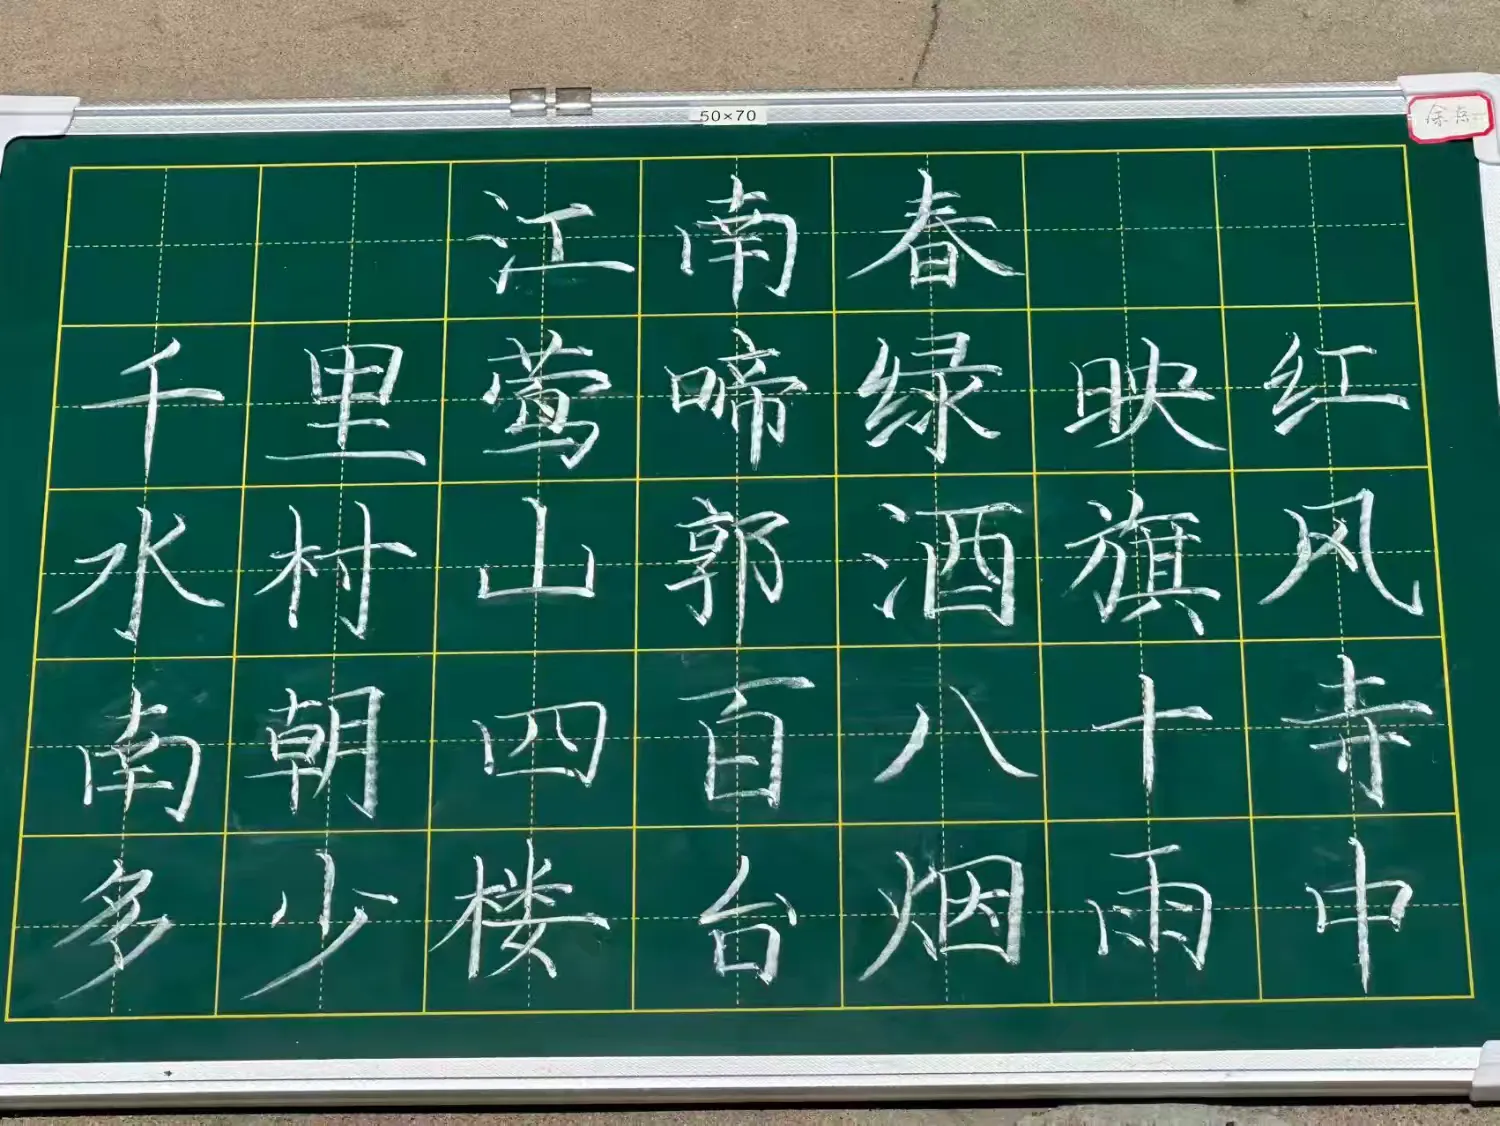 50×70
江南春
千里莺啼绿映红
水村山郭酒旗风
南朝四百八十寺
多少楼台烟雨中